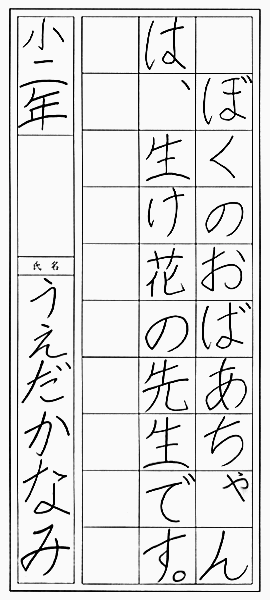 ぼくのおばあちゃん
は、生け花の先生です。
小二年
氏名
うえだかなみ